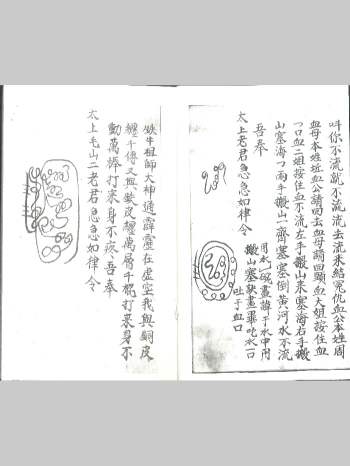 叫你不流就不流流去流来結冤仇血公本姓周
血母本姓近血公請回去血母請回頭血大姐按住血
口血二姐按住血不流左手搬山来塞海右手搬
山塞海口兩手搬山一齊塞塞倒黄河水不流
吾奉
太上老君急急如律令
用水一碗畫諱于水中用
搬山塞訣畫畢吃水一口
吐于血口
鉄牛祖師大神通霹靂在虚空我與銅皮
纏千傳又與鉄皮纏萬層千棍打来身不
動萬棒打来身不疼吾奉
太上毛山二老君急急如律令